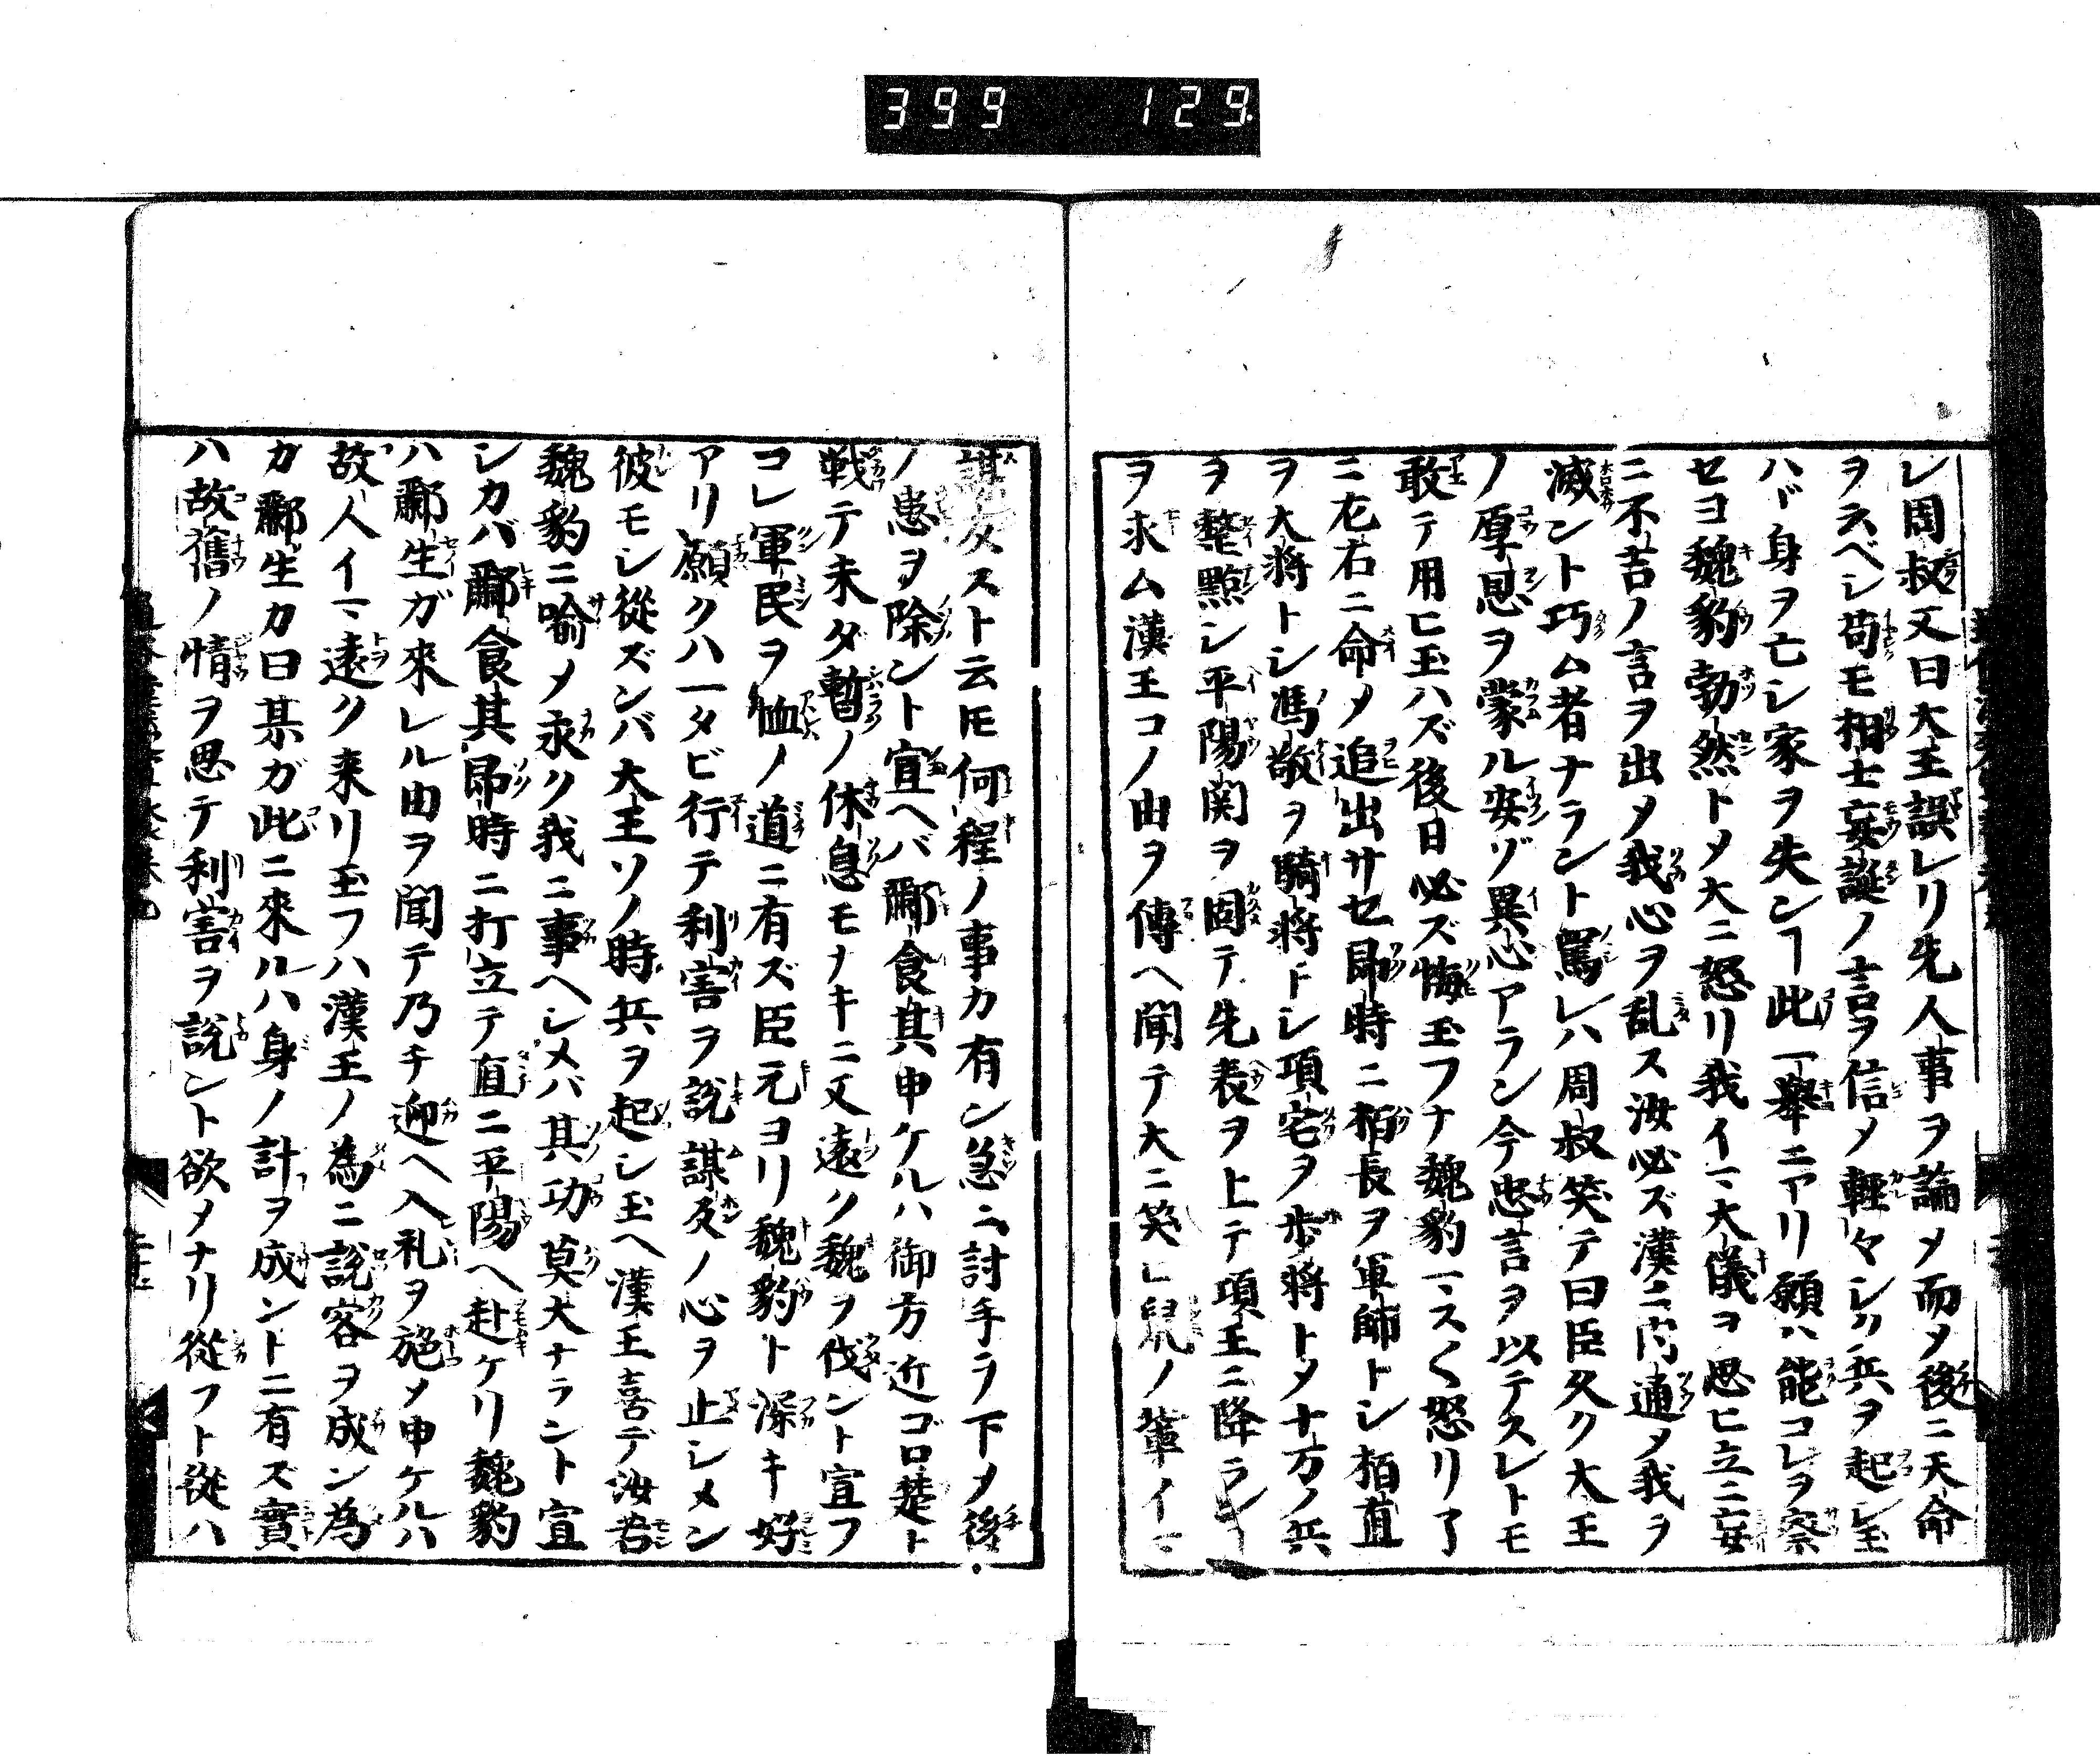 399 129
レ周叔又曰大王誤レリ先人事ヲ論メ而メ後ニ天命
ヲスベシ苟モ相士妄誕ノ言ヲ信メ軽々シク兵ヲ起シ玉
ハヾ身ヲ亡シ家ヲ失ンヿ此一舉ニアリ願ハ能コレヲ察
セヨ魏豹勃然トメ大ニ怒リ我イマ大儀ヲ思ヒ立ニ妄
ニ不吉ノ言ヲ出メ我心ヲ乱ス汝必ズ漢ニ内通メ我ヲ
滅ント巧ム者ナラント罵レハ周叔笑テ曰臣久ク大王
ノ厚恩ヲ蒙ル安ゾ異心アラン今忠言ヲ以テスレトモ
敢テ用ヒ玉ハズ後日必ズ悔玉フナ魏豹マスく怒リ了
ニ左右ニ命メ追出サセ即時ニ栢長ヲ軍師トシ栢直
ヲ大將トシ馮敬ヲ騎將トシ項宅ヲ歩將トメ十万ノ兵
ヲ整點シ平陽関ヲ固テ先表ヲ上テ項王ニ降ラン
ヲ求ム漢王コノ由ヲ傳ヘ聞テ大ニ笑ヒ兒ノ輩イマ
謀反スト云𪜈何程ノ事カ有ン急ニ討手ヲ下メ後
ノ患ヲ除ント宣ヘバ酈食其申ケルハ御方近ゴロ楚ト
戦テ未ダ暫ノ休息モナキニ又遠ク魏ヲ伐ント宣フ
コレ軍民ヲ恤ノ道ニ有ズ臣元ヨリ魏豹ト深キ好
アリ願クハ一タビ行テ利害ヲ說謀反ノ心ヲ止シメン
彼モシ從ズンバ大王ソノ時兵ヲ起シ玉ヘ漢王喜デ汝若
魏豹ニ喻メ永ク我ニ事ヘシメバ其功莫大ナラント宣
シカバ酈食其即時ニ打立テ直ニ平陽ヘ赴ケリ魏豹
ハ酈生ガ來レル由ヲ聞テ乃チ迎ヘ入礼ヲ施メ申ケルハ
故人イマ遠ク来リ玉フハ漢王ノ為ニ說客ヲ成ン為
カ酈生カ曰某ガ此ニ來ルハ身ノ計ヲ成ントニ有ズ實
ハ故舊ノ情ヲ思テ利害ヲ說ント欲メナリ從フト從ハ